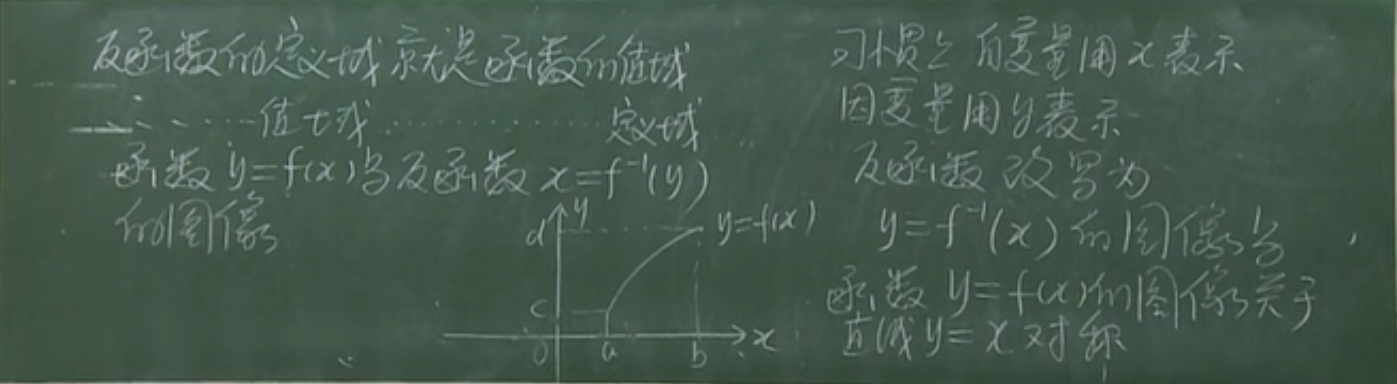 反函数的定义域就是函数的值域
......值域..........定义域
函数 y=f(x)与反函数 x=f⁻¹(y)
的图像
y
d
y=f(x)
c
0 a b x
习惯上 自变量用 x 表示
因变量用 y 表示
反函数改写为
y=f⁻¹(x) 的图像与
函数 y=f(x)的图像关于
直线 y=x 对称